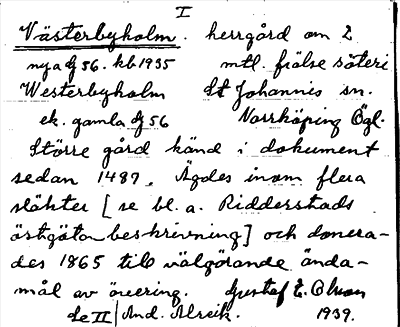 I
Västerbyholm. herrgård om 2
nya dj 56. kb 1935 mtl. frälse säteri
Westerbyholm St Johannis sn.
ek. gamla dj 56 Norrköping Ögl.
Större gård känd i dokument
sedan 1487. Ägdes inom flera
släkter [se bl. a. Ridderstads
östgöta beskrivning] och donera-
des 1865 till välgörande ända-
mål av övering. Gustaf E. Olson
Se II | And. Alreik. 1939.